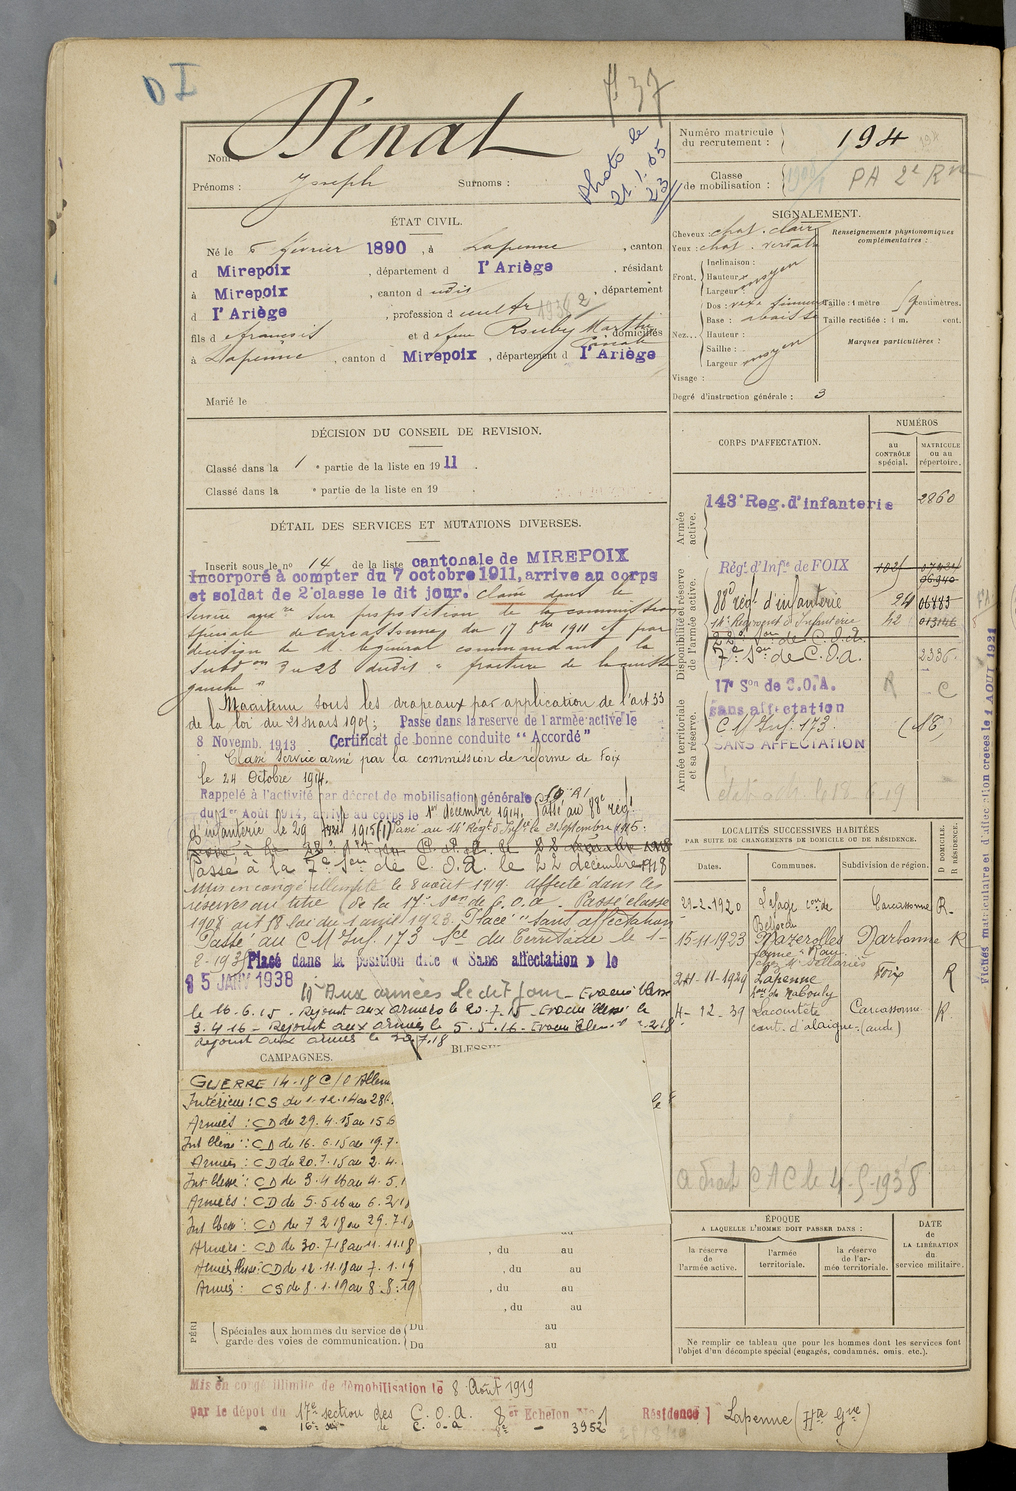 D I
F 37
Nom Dénat
Prénoms : Joseph Surnoms :
Photo le
21.1.05
23
Numéro matricule
du recrutement : 194
Classe
de mobilisation : PA 2e Rve
ÉTAT CIVIL.
Né le 5 février 1890, à Lapenne, canton
d Mirepoix, département d l'Ariège, résidant
à Mirepoix, canton d udit, département
d l'Ariège, profession d cultr
fils d e François et d e feue Rouby Marthe, domiciliés
à Lapenne, canton d Mirepoix, département d l'Ariège
Marié le
SIGNALEMENT.
Cheveux : chat. clair
Yeux : chat. verdatr
Front. Inclinaison :
Hauteur :
Largeur : moyen
Nez... Dos :
Base : abaissé
Hauteur :
Saillie :
Largeur moyen
Visage :
Degré d'instruction générale : 3
Renseignements physionomiques
complémentaires :
Taille : 1 mètre 59 centimètres.
Taille rectifiée : 1 m. cent.
Marques particulières :
DÉCISION DU CONSEIL DE REVISION.
Classé dans la 1 e partie de la liste en 1911.
Classé dans la e partie de la liste en 19 .
DÉTAIL DES SERVICES ET MUTATIONS DIVERSES.
Inscrit sous le no 14 de la liste cantonale de MIREPOIX
Incorporé à compter du 7 octobre 1911, arrive au corps
et soldat de 2e classe le dit jour. Classé dans le
service auxre sur proposition de la commission
spéciale de Carcassonne du 17 8bre 1911 et par
décision de M. le général commandant la
Subdon du 28 dudit "fracture de la cuisse
gauche"
Maintenu sous les drapeaux par application de l'art 33
de la loi du 21 mars 1905; Passe dans la reserve de l'armée active le
8 Novemb. 1913 Certificat de bonne conduite "Accordé"
Classé service armé par la commission de réforme de Foix
le 24 Octobre 1914.
Rappelé à l'activité par décret de mobilisation générale
du 1er Août 1914, arrive au corps le 1er décembre 1914. Passé au 88e régt
d'infanterie le 29 avril 1915 (1) Passé au 14e Régt d'Infie le 21 Septembre 1915.
Passé à la 7e Son de C.O.A. le 22 décembre 1918
Mis en congé illimité le 8 août 1919. affecté dans les
réserves au titre de la 17e Son de C.O.A. Passé classe
1908 art 58 loi du 1 avril 1923. Placé "Sans affectation
Passé au C M Inf. 173 Sce du Territoire le 1-
Placé dans la position dite « Sans affectation » le
15 JANV 1938
(1) Aux armées le dit jour - Evacué blessé
le 16.6.15 - Rejoint aux armées le 20.7.15 - Evacué blessé le
3.4.16 - Rejoint aux armées le 5.5.16 - Evacué blessé 7.2.18
Rejoint aux armées le 30.7.18
CORPS D'AFFECTATION.
NUMÉROS
au
CONTRÔLE
spécial.
MATRICULE
ou au
répertoire.
Armée
active.
143e Reg. d'infanterie 2860
Disponibilité et réserve
de l'armée active.
Régt d'Infie de FOIX
88e régt d'infanterie 24 06885
14e Régiment d'Infanterie 42 013146
22e Son de C.O.A.
7e Son de C.O.A. 2336
Armée territoriale
et sa réserve.
17e Son de C.O.A. R C
sans affectation
C M Inf. 173.
SANS AFFECTATION
LOCALITÉS SUCCESSIVES HABITÉES
PAR SUITE DE CHANGEMENTS DE DOMICILE OU DE RÉSIDENCE.
D DOMICILE.
R RÉSIDENCE.
Dates. Communes. Subdivision de région.
29-2-1920 Lafage con de Belpech Carcassonne R
15-11-1923 Mazerolles Narbonne R
24-11-1929 Lapenne Foix R
4-12-39 Lacourtète Carcassonne R
cant. d'alaigne (aude)
CAMPAGNES.
BLESSU
GUERRE 14-18 C/O Allem
Intérieur : CS du 1.12.14 au 28.
Armées : CD du 29.4.15 au 15.6
Int blessé : CD du 16.6.15 au 19.7.
Armées : CD du 20.7.15 au 2.4.
Int blessé : CD du 3.4.16 au 4.5.1
Armées : CD du 5.5.16 au 6.2.18
Int blessé : CD du 7.2.18 au 29.7.18
Armées : CD du 30.7.18 au 11.11.18
Armées blessé : CD du 12.11.18 au 7.1.19
Armées : CS du 8.1.19 au 8.8.19
, du au
, du au
, du au
, du au
PÉRI
Spéciales aux hommes du service de
garde des voies de communication.
Du au
Du au
a droit C A C le 4-5-1938
ÉPOQUE
A LAQUELLE L'HOMME DOIT PASSER DANS :
la réserve
de
l'armée active.
l'armée
territoriale.
la réserve
de l'ar-
mée territoriale.
DATE
de
LA LIBÉRATION
du
service militaire.
Ne remplir ce tableau que pour les hommes dont les services font
l'objet d'un décompte spécial (engagés, condamnés, omis, etc.).
Mis en congé illimité de démobilisation le 8 Août 1919
par le dépot du 17e section des C.O.A. 8e Echelon No 1 Résidence Lapenne (Hte Gne)
16e son de C.O.A 8e - 3952
Fiches matriculaire et d'affectation créées le 1 AOUT 1921